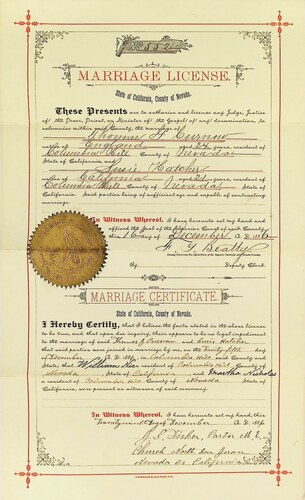 No. 552
MARRIAGE LICENSE.
State of California, County of Nevada.
These Presents are to authorize and license any Judge, Justice
of the Peace, Priest, or Minister of the Gospel of any denomination, to
solemnize within said County, the marriage of
Thomas J. Curnow
native of England aged 24 years, resident of
Columbia Hill County of Nevada State of
California and Susie Hatcher
native of California aged 21 years, resident of
Columbia Hill County of Nevada State of
California. Said parties being of sufficient age and capable of contracting
marriage.
In Witness Whereof, I have hereunto set my hand and
affixed the Seal of the Superior Court of said County
this 16 day of December A.D. 189
F. G. Beatty
By
Deputy Clerk.
MARRIAGE CERTIFICATE.
State of California, County of Nevada.
I Hereby Certify, that I believe the facts stated in the above license
to be true, and that upon due inquiry, there appears to be no legal impediment
to the marriage of said Thomas J. Curnow and Susie Hatcher
that said parties were joined in marriage by me, on the Twenty fifth day
of December A.D. 189 in Columbia Hill said County and
State; that William a resident of Columbia Hill County of
Nevada State of California and Martha Nicholas
a resident of Columbia Hill County of Nevada State of
California, are present as witnesses of said ceremony.
In Witness Whereof, I have hereunto set my hand this
day of December A.D. 189
Pastor M. E.
Church North San Juan
Nevada Co California